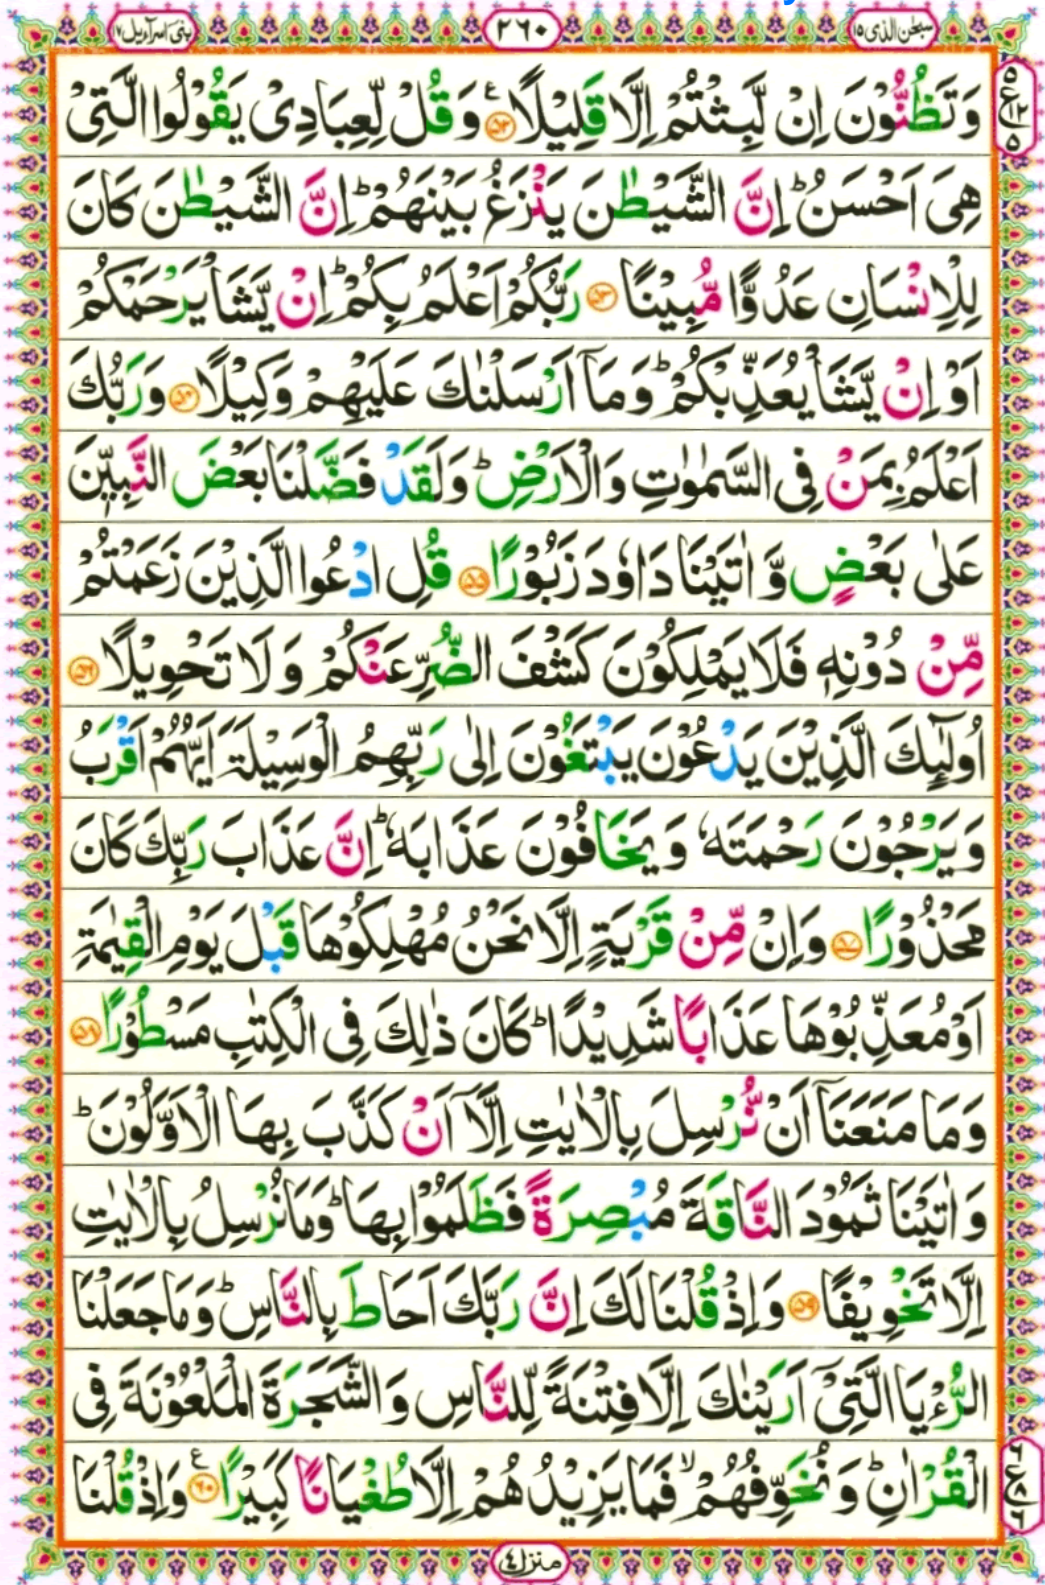 سبحٰن الذی ١٥
٢٦٠
بنی اسرآءیل ١٧
وَتَظُنُّوْنَ اِنْ لَّبِثْتُمْ اِلَّا قَلِيْلًا ﴿٥٢﴾ ع وَقُلْ لِّعِبَادِىْ يَقُوْلُوا الَّتِىْ
٥ ع ١٢ ٥
هِىَ اَحْسَنُ ؕ اِنَّ الشَّيْطٰنَ يَنْزَغُ بَيْنَهُمْ ؕ اِنَّ الشَّيْطٰنَ كَانَ
لِلْاِنْسَانِ عَدُوًّا مُّبِيْنًا ﴿٥٣﴾ رَبُّكُمْ اَعْلَمُ بِكُمْ ؕ اِنْ يَّشَاْ يَرْحَمْكُمْ
اَوْ اِنْ يَّشَاْ يُعَذِّبْكُمْ ؕ وَمَاۤ اَرْسَلْنٰكَ عَلَيْهِمْ وَكِيْلًا ﴿٥٤﴾ وَرَبُّكَ
اَعْلَمُ بِمَنْ فِى السَّمٰوٰتِ وَالْاَرْضِ ؕ وَلَقَدْ فَضَّلْنَا بَعْضَ النَّبِيّٖنَ
عَلٰى بَعْضٍ وَّاٰتَيْنَا دَاوٗدَ زَبُوْرًا ﴿٥٥﴾ قُلِ ادْعُوا الَّذِيْنَ زَعَمْتُمْ
مِّنْ دُوْنِهٖ فَلَا يَمْلِكُوْنَ كَشْفَ الضُّرِّ عَنْكُمْ وَلَا تَحْوِيْلًا ﴿٥٦﴾
اُولٰٓئِكَ الَّذِيْنَ يَدْعُوْنَ يَبْتَغُوْنَ اِلٰى رَبِّهِمُ الْوَسِيْلَةَ اَيُّهُمْ اَقْرَبُ
وَيَرْجُوْنَ رَحْمَتَهٗ وَيَخَافُوْنَ عَذَابَهٗ ؕ اِنَّ عَذَابَ رَبِّكَ كَانَ
مَحْذُوْرًا ﴿٥٧﴾ وَاِنْ مِّنْ قَرْيَةٍ اِلَّا نَحْنُ مُهْلِكُوْهَا قَبْلَ يَوْمِ الْقِيٰمَةِ
اَوْ مُعَذِّبُوْهَا عَذَابًا شَدِيْدًا ؕ كَانَ ذٰلِكَ فِى الْكِتٰبِ مَسْطُوْرًا ﴿٥٨﴾
وَمَا مَنَعَنَاۤ اَنْ نُّرْسِلَ بِالْاٰيٰتِ اِلَّاۤ اَنْ كَذَّبَ بِهَا الْاَوَّلُوْنَ ؕ
وَاٰتَيْنَا ثَمُوْدَ النَّاقَةَ مُبْصِرَةً فَظَلَمُوْا بِهَا ؕ وَمَا نُرْسِلُ بِالْاٰيٰتِ
اِلَّا تَخْوِيْفًا ﴿٥٩﴾ وَاِذْ قُلْنَا لَكَ اِنَّ رَبَّكَ اَحَاطَ بِالنَّاسِ ؕ وَمَا جَعَلْنَا
الرُّءْيَا الَّتِىْۤ اَرَيْنٰكَ اِلَّا فِتْنَةً لِّلنَّاسِ وَالشَّجَرَةَ الْمَلْعُوْنَةَ فِى
الْقُرْاٰنِ ؕ وَنُخَوِّفُهُمْ ۙ فَمَا يَزِيْدُهُمْ اِلَّا طُغْيَانًا كَبِيْرًا ﴿٦٠﴾ ع وَاِذْ قُلْنَا
٦ ع ٨ ٦
منزل ٤